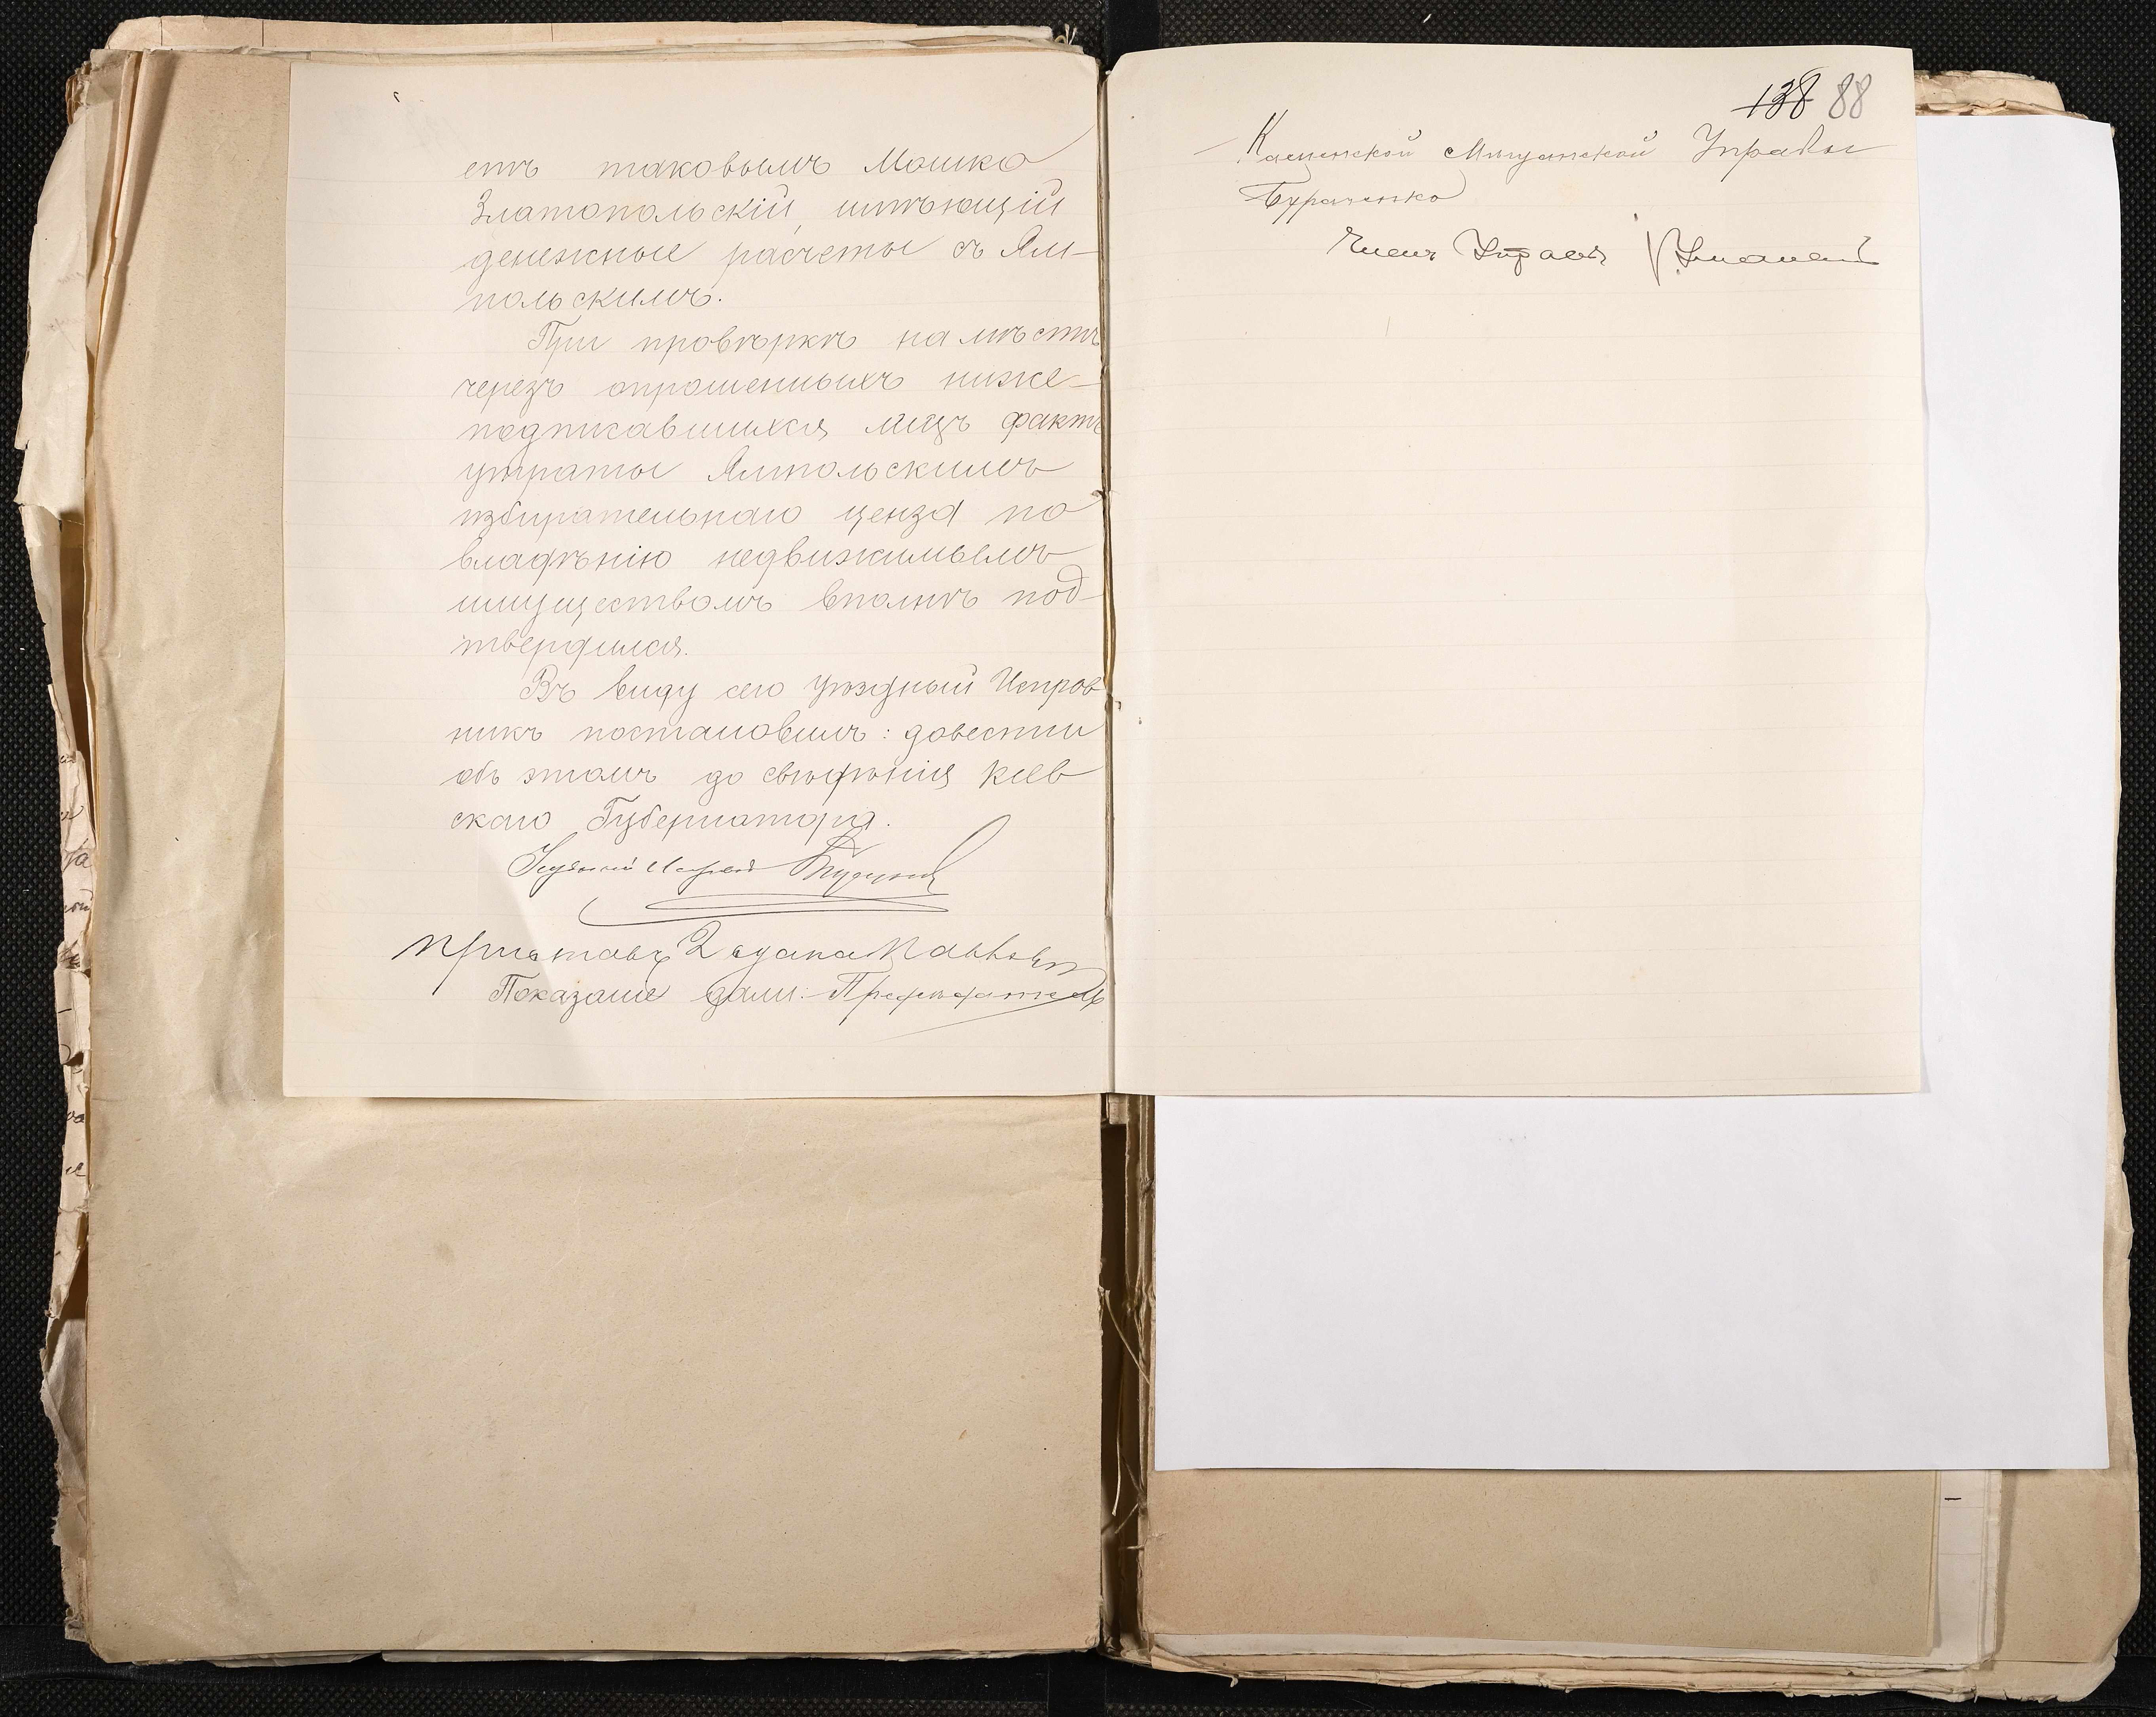 етъ таковымъ Мошко
Златопольскій, имѣющій
денежные расчеты съ Ям-
польскимъ.
При провѣркѣ на мѣстѣ
черезъ опрошенныхъ ниже-
подписавшихся лицъ фактъ
утраты Ямпольскимъ
избирательнаго ценза по
владѣнію недвижимымъ
имуществомъ вполнѣ под-
твердился.
Въ виду сего уѣздный Исправ
никъ постановилъ: довести
объ этомъ до свѣдѣнія Кіев
скаго Губернатора.
Уѣздный Исправ
Приставъ 2 стана
Показаніе дали: Предсѣдатель
138 88
Мѣщанской Управы
Бураченко
Членъ Управы